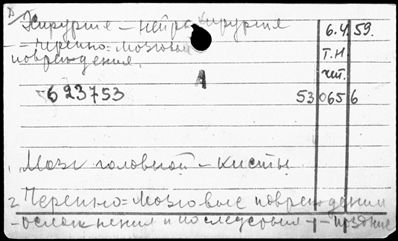 Хирургия – Нейрохирургия
6.4.59.
– Черепно=мозговые
Т.Н.
повреждения.
чит.
А
623753
53 065 6
1. Мозг головной – кисты
2. Черепно=мозговые повреждения
– осложнения и последствия –